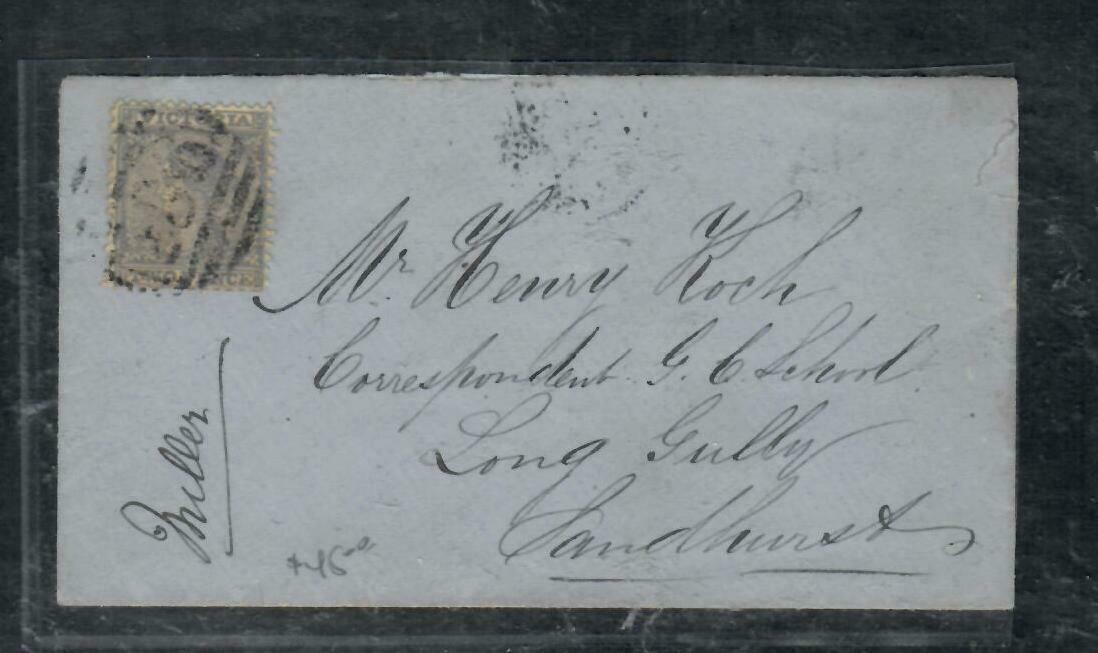 VICTORIA
Mr. Henry Koch
Correspondent G. C. School
Long Gully
Sandhurst
Miller